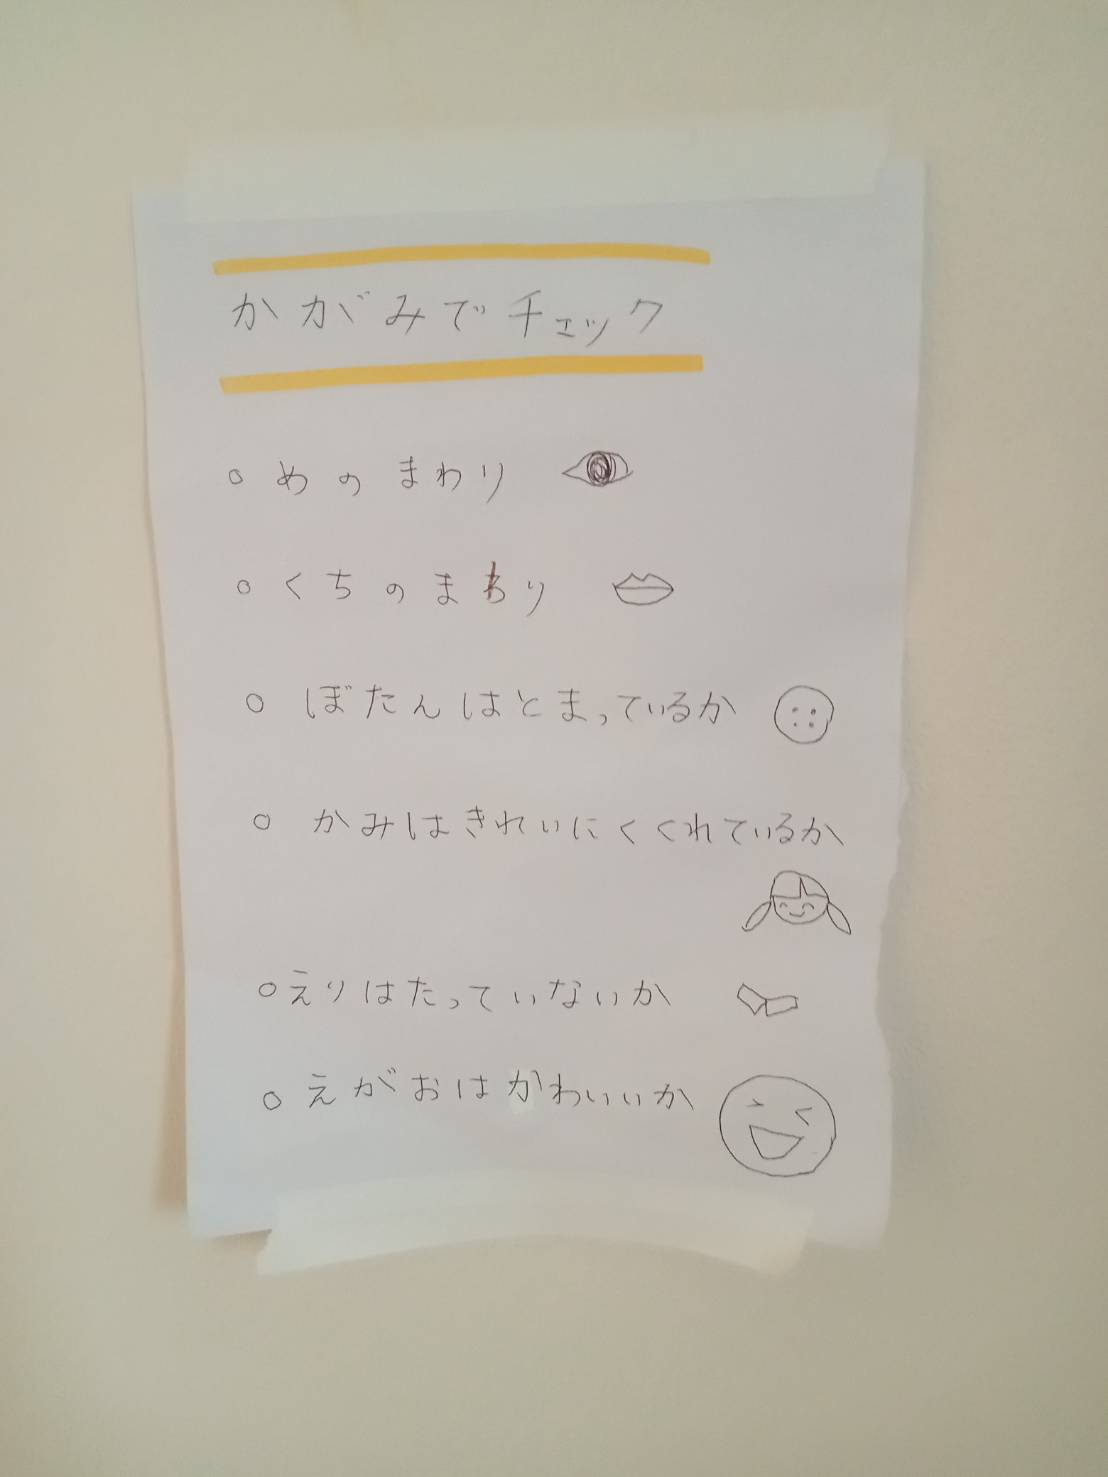 かがみでチェック
○ めのまわり
○ くちのまわり
○ ぼたんはとまっているか
○ かみはきれいにくくれているか
○ えりはたっていないか
○ えがおはかわいいか